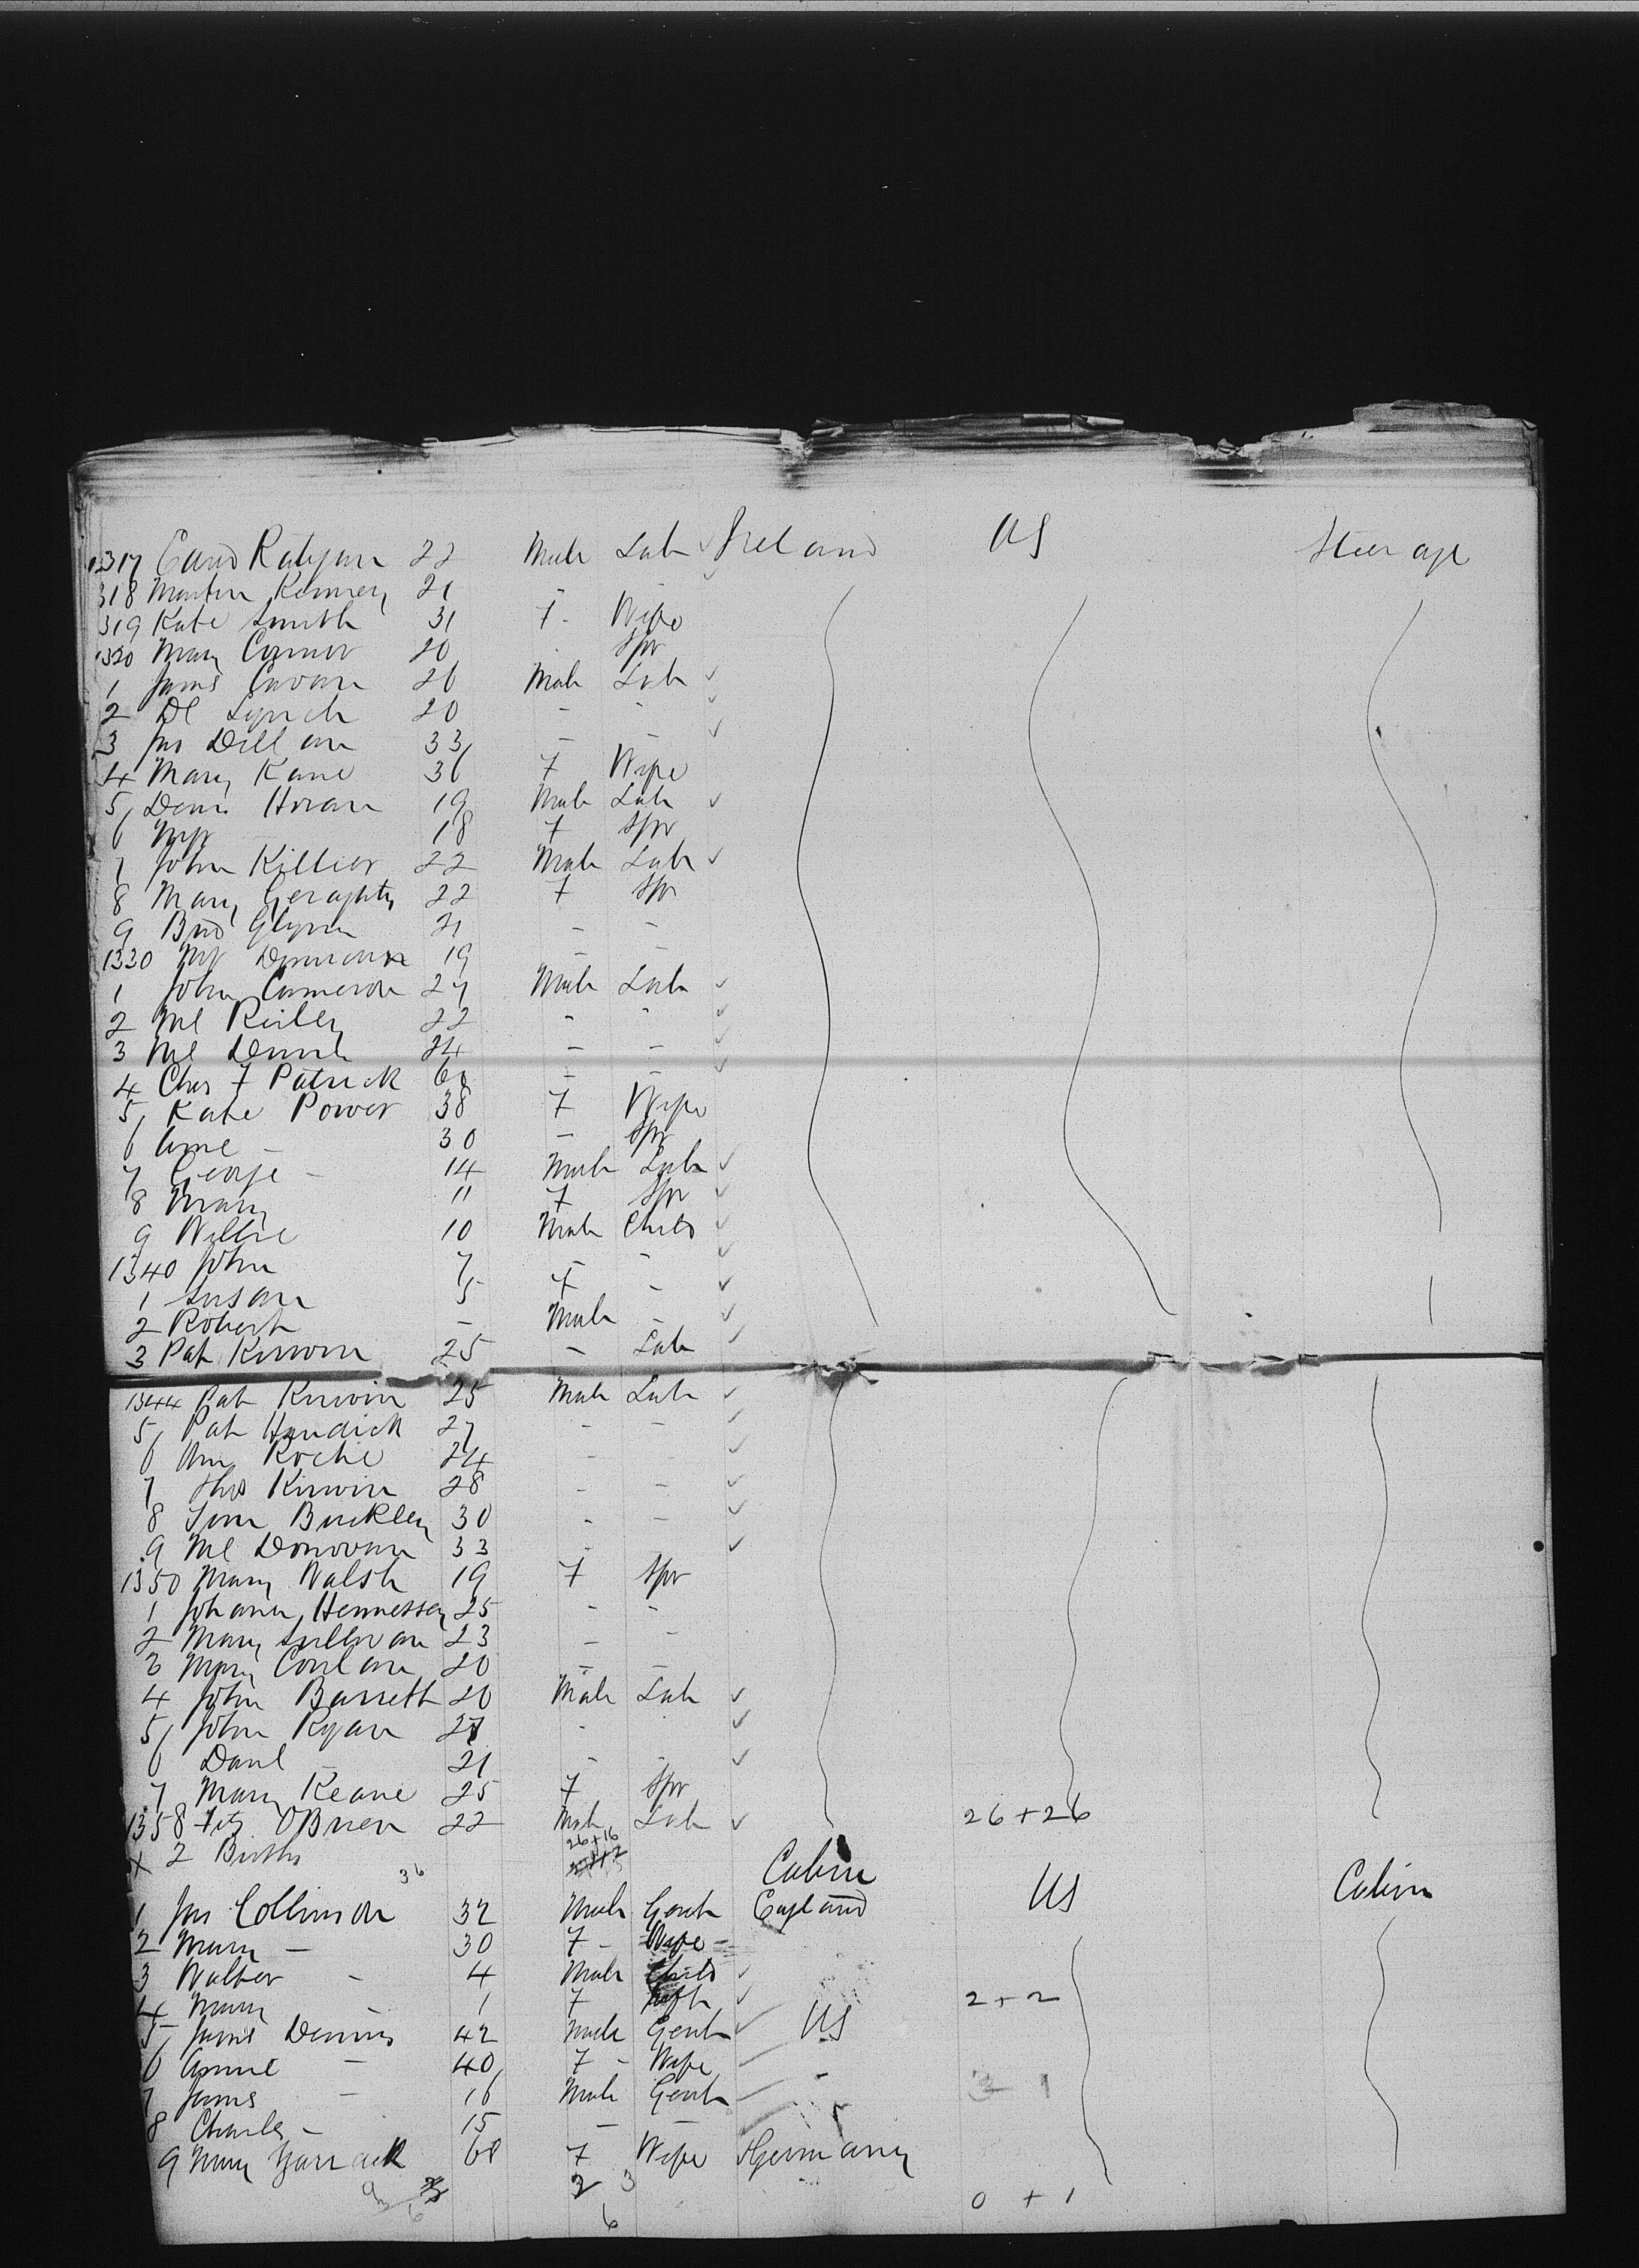 1317 Edwd 22 Male Lab ✓ Ireland US Steerage
318 Martin Kenney 21 - - ✓
319 Kate Smith 31 F - Wife
1320 Mary Connor 20 Spr
1 James Cavan 26 Male Lab ✓
2 Dl Lynch 20 - - ✓
3 Jas Dillon 33 - - ✓
4 Mary Kane 36 F Wife
5 Denis Horan 19 Male Lab ✓
6 Mgt - 18 F Spr
7 John 22 Male Lab ✓
8 Mary Geraghty 22 F Spr
9 Brid Glynn 21 - -
1330 Mgt 19 - -
1 John Cameron 27 Male Lab ✓
2 Ml Reiley 22 - - ✓
3 Ml 24 - - ✓
4 Chas F Patrick 60 - - ✓
5 Kate Power 38 F Wife
6 Anne - 30 - Spr
7 George - 14 Male Lab ✓
8 Mary 11 F Spr ✓
9 Willie 10 Male Child ✓
1340 John 7 - - ✓
1 Susan 5 F - ✓
2 Robert - Male - ✓
3 Pat Kirwin 25 - Lab ✓
1344 Pat Kirwin 25 Male Lab ✓
5 Pat 27 - - ✓
6 Roche 24 - - ✓
7 Thos Kirwin 28 - - ✓
8 Tim Buckley 30 - - ✓
9 Ml Donovan 33 - - ✓
1350 Mary Walsh 19 F Spr
1 Johanna Hennessey 25 - -
2 Mary Sullivan 23 - -
3 Mary Conlan 20 - -
4 John Barrett 20 Male Lab ✓
5 John Ryan 27 - - ✓
6 Danl - 21 - - ✓
7 Mary Keane 25 F Spr
1358 Fitz OBrien 22 Male Lab ✓ 26 + 26
+ 2 Births 26+16
36 Cabin US Cabin
1 Jas Collinson 32 Male Gent England
2 Mary - 30 F - Wife -
3 Walter - 4 Male Child ✓
4 Mary 1 F Inft ✓ 2 + 2
5 James Dennis 42 Male Gent ✓ US
6 Annie - 40 F - Wife
7 James - 16 Male Gent - 1
8 Charles - 15 - -
9 Mary 68 F Wife Germany
2 3
6 0 + 1